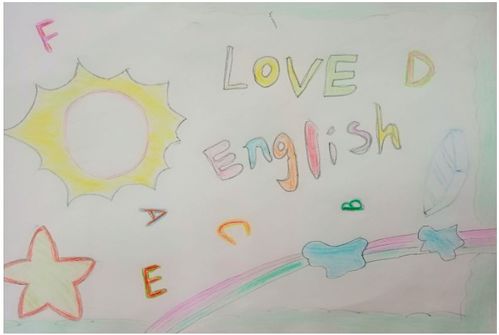 F
LOVE D
English
A C B
E